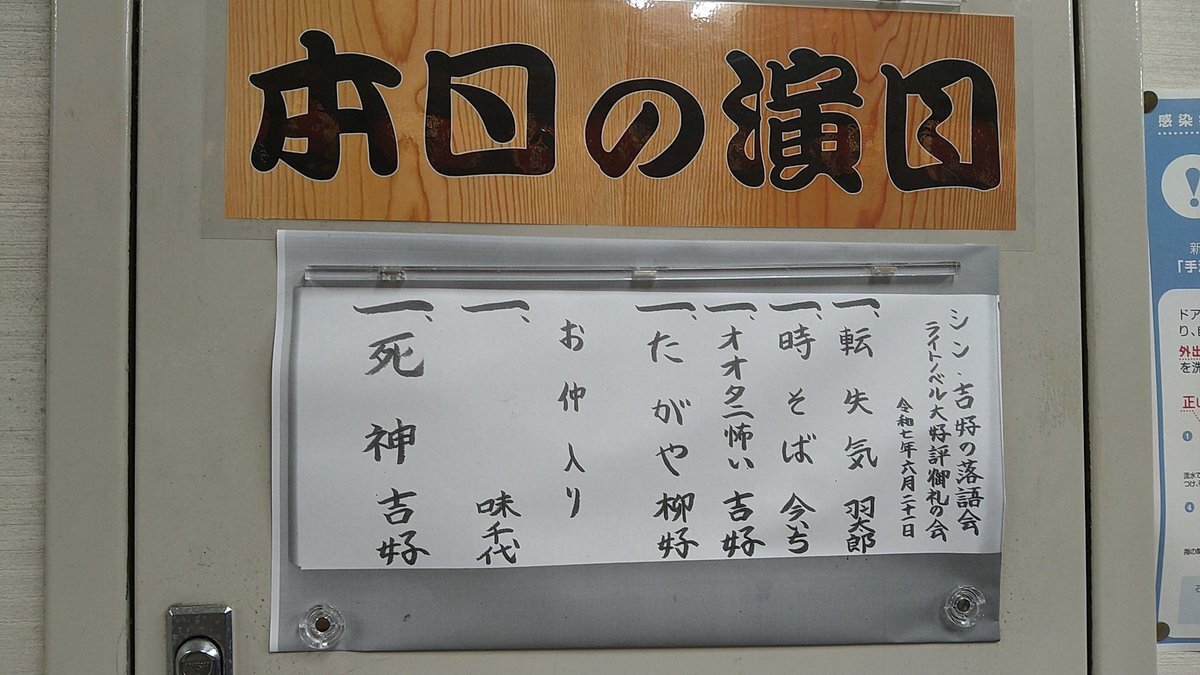 本日の演目
シン・吉好の落語会
ライトノベル大好評御礼の会
令和七年六月二十一日
一、転失気 羽太郎
一、時そば 今いち
一、オオタニ怖い 吉好
一、たがや 柳好
お仲入り
一、 味千代
一、死神 吉好
感染
新
「手洗
ドア
り、
外出
を洗
正し
①
④